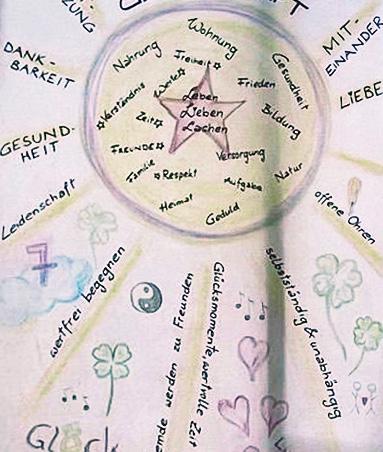 ZUNG
FT
MIT-
EINANDER
DANK-
BARKEIT
LIEBE
GESUND-
HEIT
Leidenschaft
offene Ohren
Wohnung
Nahrung
Freiheit
Gesundheit
Werte
Frieden
Verständnis
Leben
Lieben
Lachen
Bildung
Zeit
FREUNDE
Versorgung
Familie
Respekt
Aufgabe
Natur
Heimat
Geduld
wertfrei begegnen
emde werden zu Freunden
Glücksmomente, wertvolle Zeit
selbstständig & unabhängig
Glück